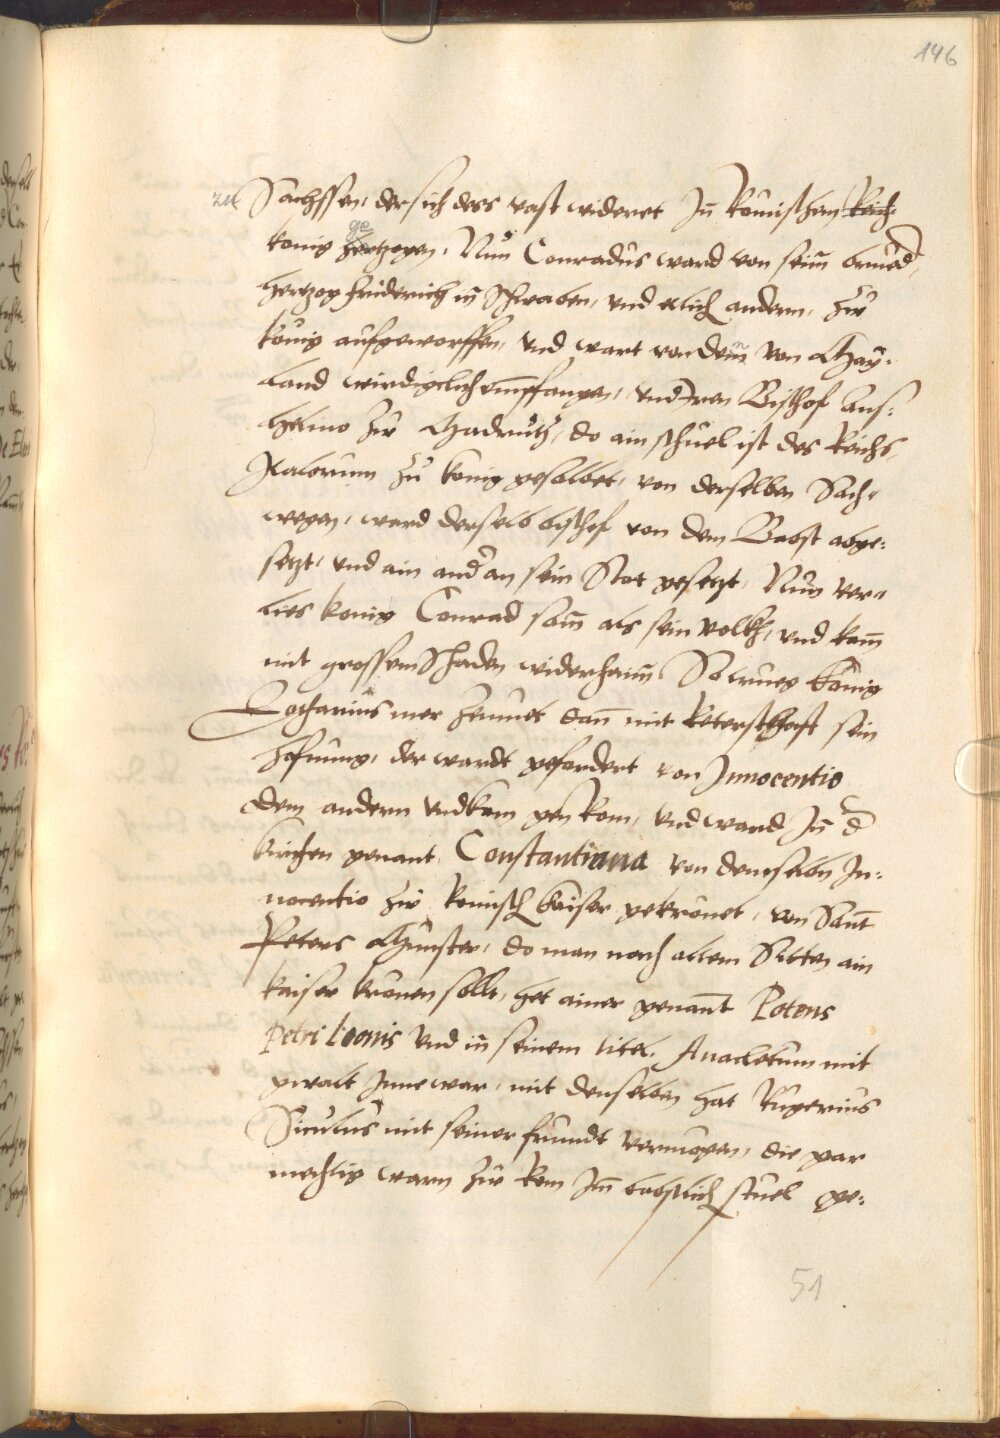 146
zu Sachssen, der sich dess vast wideret Jn̄ Romischen Reich,
konig ge hertzogen. Nun Conradus ward von seim̄ brued̄,
hertzog Friderich in̄ Schwaben, vnd etlich andern, zw
konig aufgeworffen, vnd wart von den von May:
land wirdigelich emp̄fangen, vnd von Bischof Ans:
helmo zw Madrutz, do ain stuel ist des Reichs
Italorum zu konig gesalbet, von derselben Sach,
wegen, ward derselb bischof von dem Babst abge:
setzt, vnd ain and̄ an sein Stat gesetzt, Nun ver:
lies konig Conrad som̄ als sein volkh, vnd kam̄
mit grossem Schaden widerhaim̄ So trueg konig
Lotharius mer hennet dan̄ mit Ritterschaft sein
hofnung, der wardt gefordert von Innocentio
dem andern vnd kam gen Rom, vnd ward Jn̄ d̄
kirchen genant, Constantiana von demselben In:
nocentio zw Romisch kaiser gekronet, von Sant̄
Peters Munster, do man nach altem Sitten ain
kaiser kronen sollt, het ainer genan̄t Petrus
Petri Leonis vnd in̄ seinem titel. Anacletum mit
gwalt Jnne war, mit denselben hat Rugerius
Siculus mit seiner frundt vermugen, die gar
mechtig warn zw Rom Jm̄ babstlich stuel ge:
51